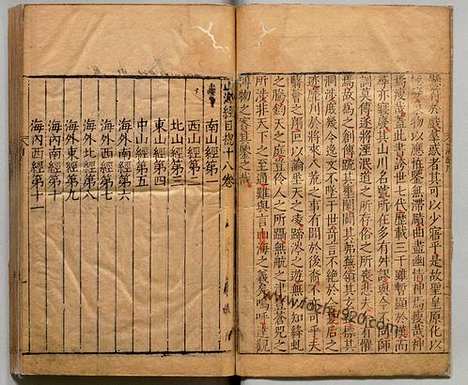 於戲羣惑者其可以少寤乎是故聖皇原化以
極變象物以應怪鑒無滯賾曲盡幽情神焉廋哉神焉
廋哉蓋此書跨世七代歷載三千雖暫顯於漢而
尋亦寢廢其山川名號所在多有舛謬與今不同師
訓莫傳遂將湮泯道之所存俗之所喪悲夫余有
懼焉故為之創傳疏其壅閡闢其茀蕪領其玄致標其
洞涉庶幾令逸文不墜于世奇言不絕於今夏后之
跡靡刊於將來八荒之事有聞於後裔不亦可乎夫
翳薈之翔叵以論垂天之凌蹄涔之遊無以知絳虬
之騰鈞天之庭豈伶人之所躡無航之津豈蒼兕之
所涉非天下之至通難與言山海之義矣嗚呼達觀
博物之客其鑒之哉
山海經目總十八卷
南山經第一
西山經第二
北山經第三
東山經第四
中山經第五
海外南經第六
海外西經第七
海外北經第八
海外東經第九
海內南經第十
海內西經第十一